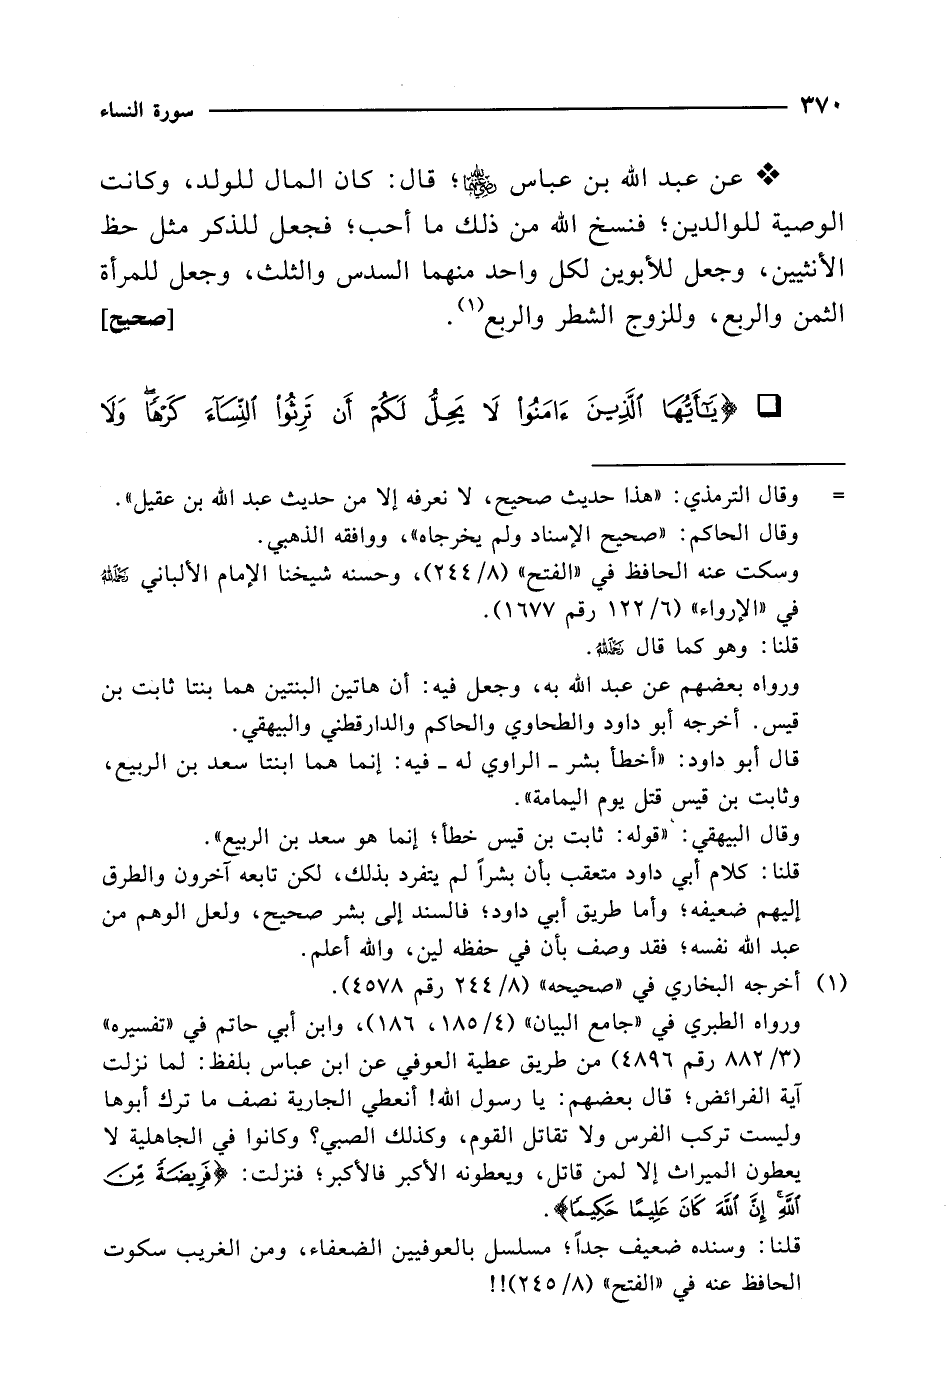 ٣٧٠ سورة النساء
❖ عن عبد الله بن عباس رضي الله عنهما؛ قال: كان المال للولد، وكانت
الوصية للوالدين؛ فنسخ الله من ذلك ما أحب؛ فجعل للذكر مثل حظ
الأنثيين، وجعل للأبوين لكل واحد منهما السدس والثلث، وجعل للمرأة
الثمن والربع، وللزوج الشطر والربع(١). [صحيح]
❑ ﴿يَٰٓأَيُّهَا ٱلَّذِينَ ءَامَنُوا۟ لَا يَحِلُّ لَكُمْ أَن تَرِثُوا۟ ٱلنِّسَآءَ كَرْهًاۖ وَلَا
= وقال الترمذي: «هذا حديث صحيح، لا نعرفه إلا من حديث عبد الله بن عقيل».
وقال الحاكم: «صحيح الإسناد ولم يخرجاه»، ووافقه الذهبي.
وسكت عنه الحافظ في «الفتح» (٨/ ٢٤٤)، وحسنه شيخنا الإمام الألباني رحمه الله
في «الإرواء» (٦/ ١٢٢ رقم ١٦٧٧).
قلنا: وهو كما قال رحمه الله.
ورواه بعضهم عن عبد الله به، وجعل فيه: أن هاتين البنتين هما بنتا ثابت بن
قيس. أخرجه أبو داود والطحاوي والحاكم والدارقطني والبيهقي.
قال أبو داود: «أخطأ بشر ـ الراوي له ـ فيه: إنما هما ابنتا سعد بن الربيع،
وثابت بن قيس قتل يوم اليمامة».
وقال البيهقي: «قوله: ثابت بن قيس خطأ؛ إنما هو سعد بن الربيع».
قلنا: كلام أبي داود متعقب بأن بشراً لم يتفرد بذلك، لكن تابعه آخرون والطرق
إليهم ضعيفه؛ وأما طريق أبي داود؛ فالسند إلى بشر صحيح، ولعل الوهم من
عبد الله نفسه؛ فقد وصف بأن في حفظه لين، والله أعلم.
(١) أخرجه البخاري في «صحيحه» (٨/ ٢٤٤ رقم ٤٥٧٨).
ورواه الطبري في «جامع البيان» (٤/ ١٨٥، ١٨٦)، وابن أبي حاتم في «تفسيره»
(٣/ ٨٨٢ رقم ٤٨٩٦) من طريق عطية العوفي عن ابن عباس بلفظ: لما نزلت
آية الفرائض؛ قال بعضهم: يا رسول الله! أنعطي الجارية نصف ما ترك أبوها
وليست تركب الفرس ولا تقاتل القوم، وكذلك الصبي؟ وكانوا في الجاهلية لا
يعطون الميراث إلا لمن قاتل، ويعطونه الأكبر فالأكبر؛ فنزلت: ﴿فَرِيضَةً مِّنَ
ٱللَّهِۗ إِنَّ ٱللَّهَ كَانَ عَلِيمًا حَكِيمًا﴾.
قلنا: وسنده ضعيف جداً؛ مسلسل بالعوفيين الضعفاء، ومن الغريب سكوت
الحافظ عنه في «الفتح» (٨/ ٢٤٥)!!